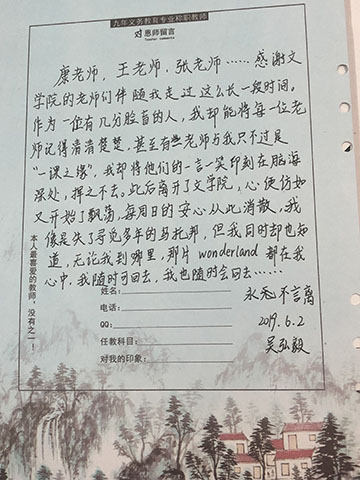 九年义务教育专业称职教师
对恩师留言
Teacher comments
康老师，王老师，张老师……感谢文
学院的老师们伴随我走过这么长一段时间。
作为一位有几分脸盲的人，我却能将每一位老
师记得清清楚楚，甚至有些老师与我只不过是
“一课之缘”，我却将他们的一言一笑印刻在脑海
深处，挥之不去。此后离开了文学院，心便仿如
又开始了飘荡，每周日的安心从此消散，我
像是失了寻觅多年的乌托邦，但我同时却也知
道，无论我到哪里，那片wonderland都在我
心中，我随时可回去，我也随时会回去……
姓名：
永无不言离
电话：
2019.6.2
QQ：
吴弘毅
任教科目：
对我的印象：
本人最喜爱的教师，没有之一！